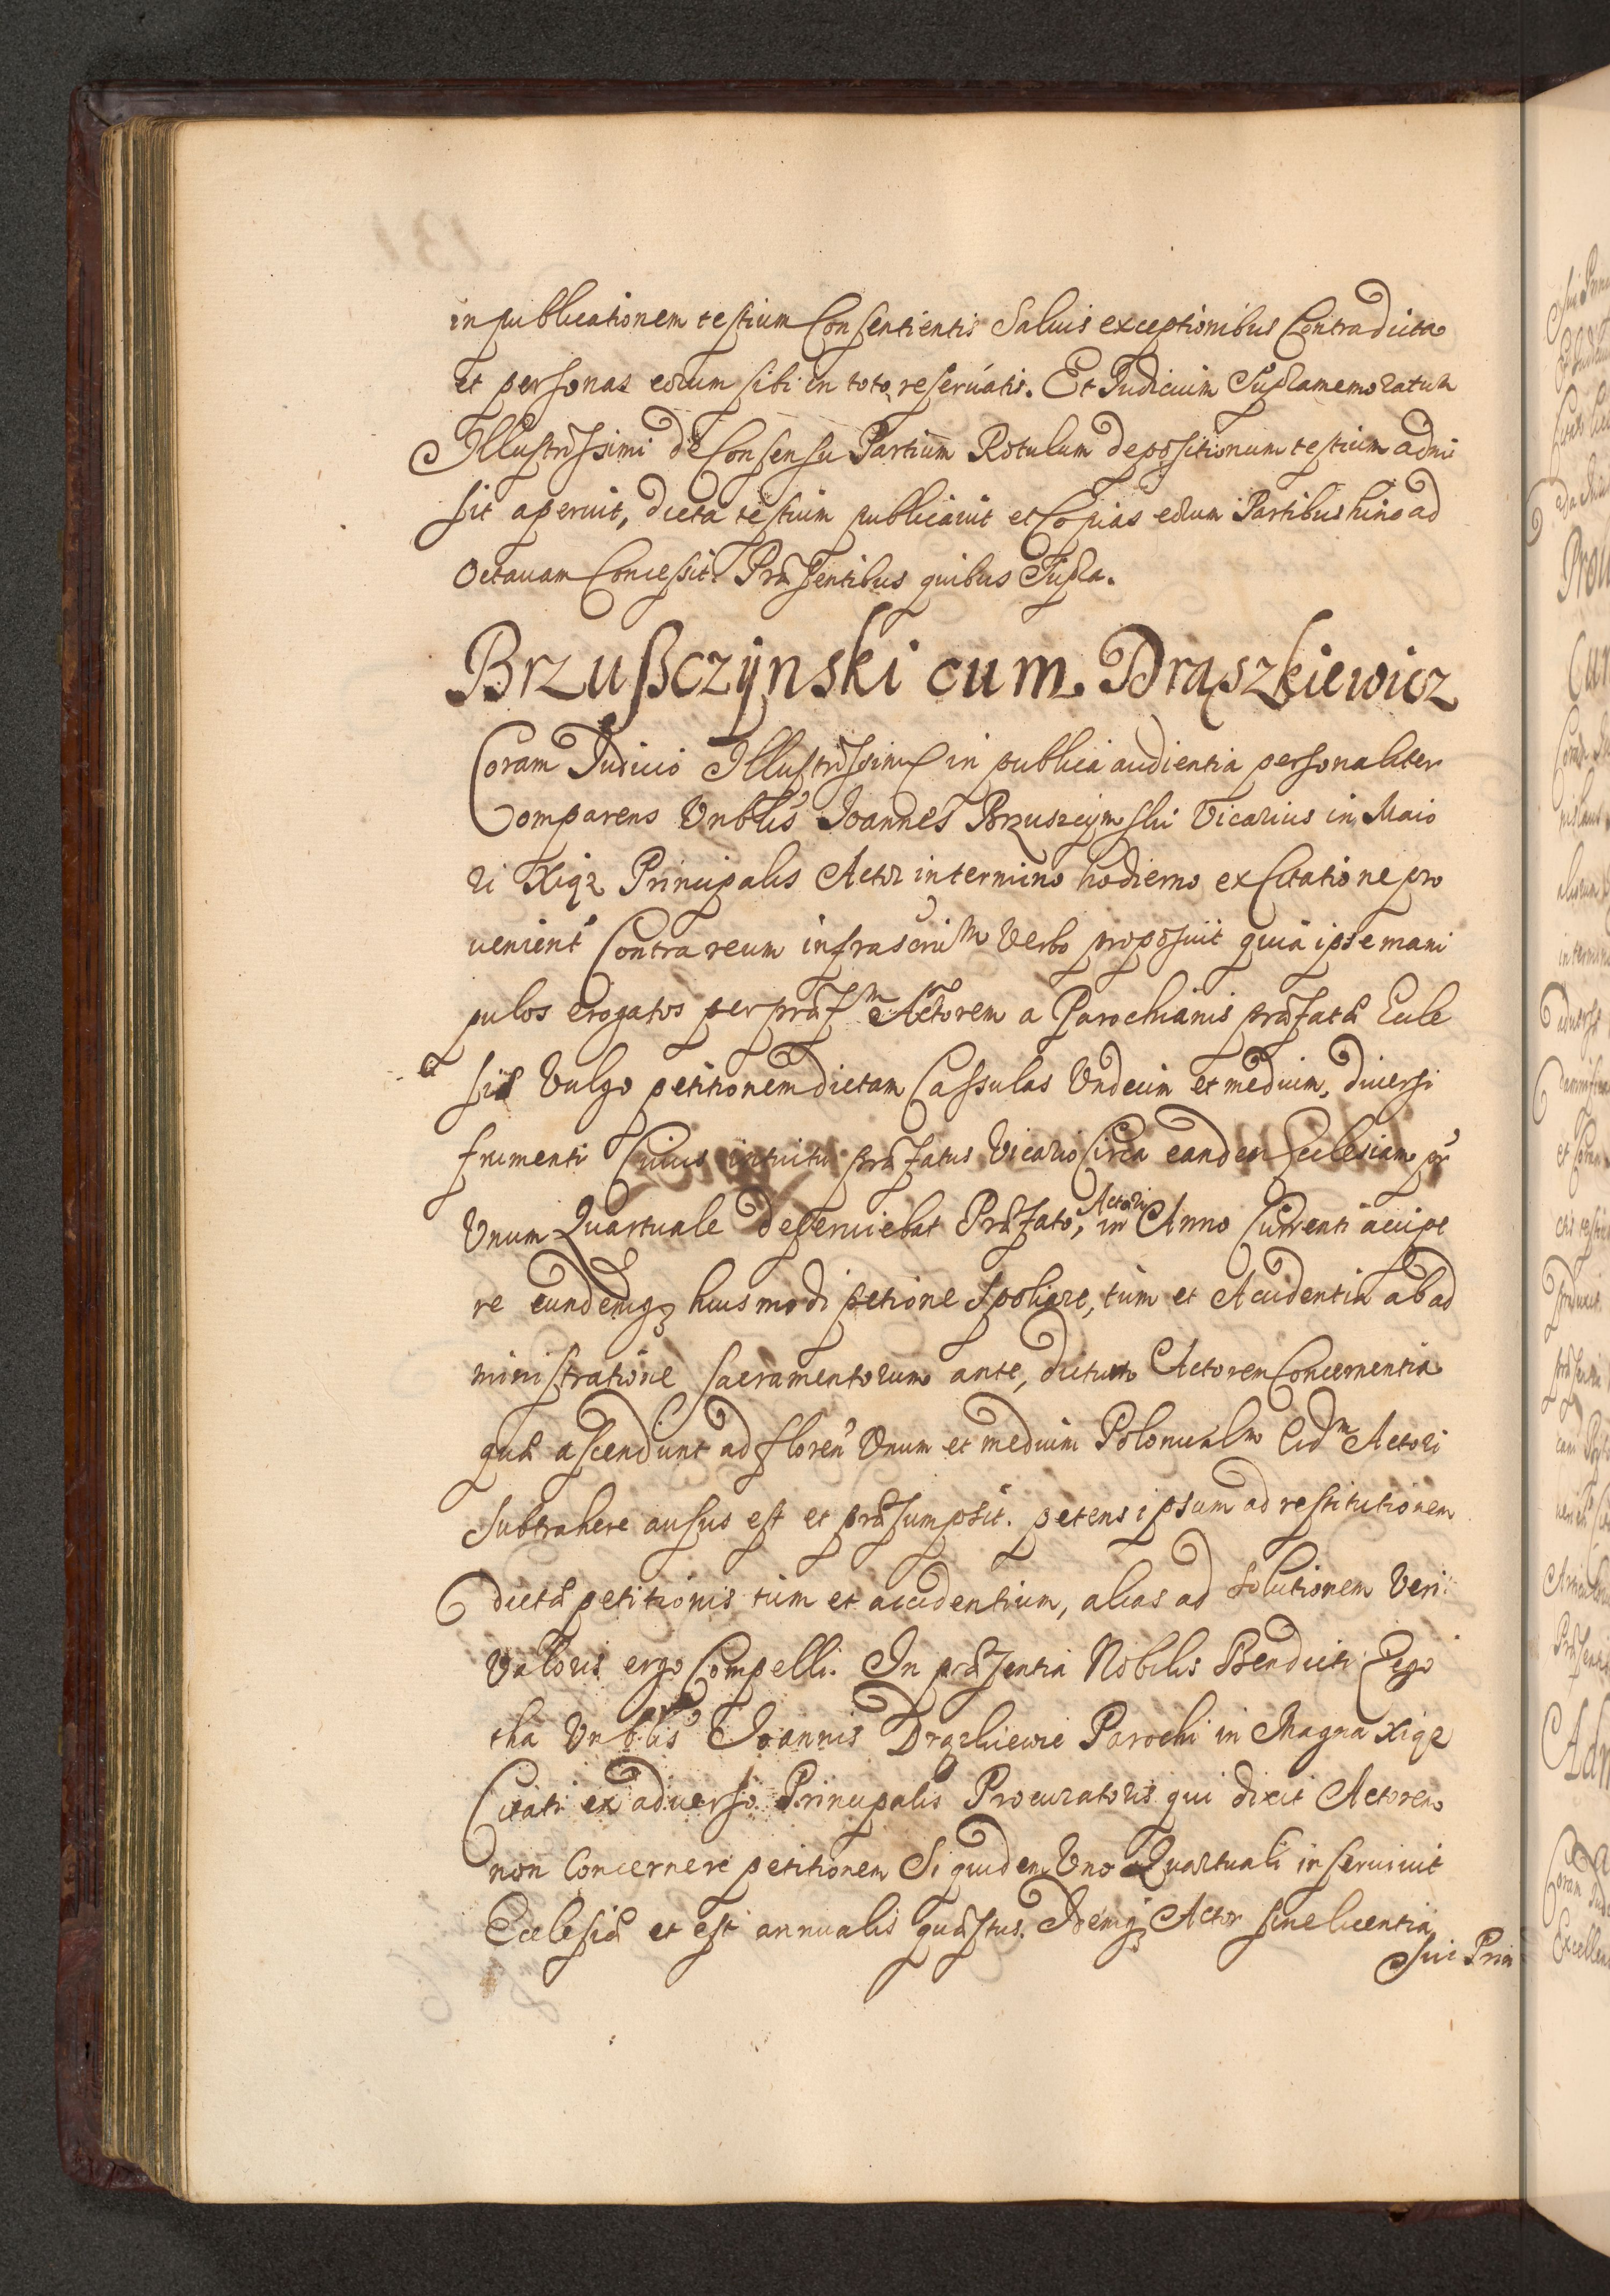 in publicationem testium Consentientis Saluis exceptionibus Contra dicta
et personas eorum sibi in toto reseruatis. Et Judicium Supramemoratum
Illustrissimi de Consensu Partium Rotulum depositionum testium admi
sit aperuit, dicta testium publicauit et Copias eorum Partibus hinc ad
Octauam Concessit. Præsentibus quibus Supra.
Brzußczÿnski cum. Drąszkiewicz
Coram Judicio Illustrissimi in publica audientia personaliter
Comparens Vnblis Joannes Brzuszcynski Vicarius in Maio
ri Xiąz Principalis Actor in termino hodierno ex Citatione pro
uenient Contra reum infrascrium Verbo proposuit quia ipse mani
pulos erogatos per præfm Actorem a Parochianis præfatæ Eccle
siæ Vulgo petitionem dictam Cassulas Vndecim et medium, diuersi
frumenti Cuius intuitu præfatus Vicario Circa eandem Ecclesiam pr
Vnum Quartuale deseruiebat Præfato, Actori in Anno Currenti accipe
re eundemq3 huiusmodi petione Spoliare, tum et Accidentia ab ad
ministratione Sacramentorum ante, dictum Actorem Concernentia
quæ ascendunt ad floren Vnum et medium Polonicalm Eidm Actori
Subtrahere ausus est et præsumpsit. petens ipsum ad restitutionem
dictæ petitionis tum et accidentium, alias ad Solutionem Veri
Valoris ergo Compelli. In præsentia Nobilis Bendicti Cygo
tha Vnblis Joannis Drązkiewic Parochi in Magna Xiąz
Citati ex aduerso Principalis Procuratoris qui dixit Actorem
non Concernere petitionem Si quidem Vno Quartuali inseruiuit
Ecclesiæ et est annualis quæstus. Idemq3 Actor sine licentia
Sui Prin